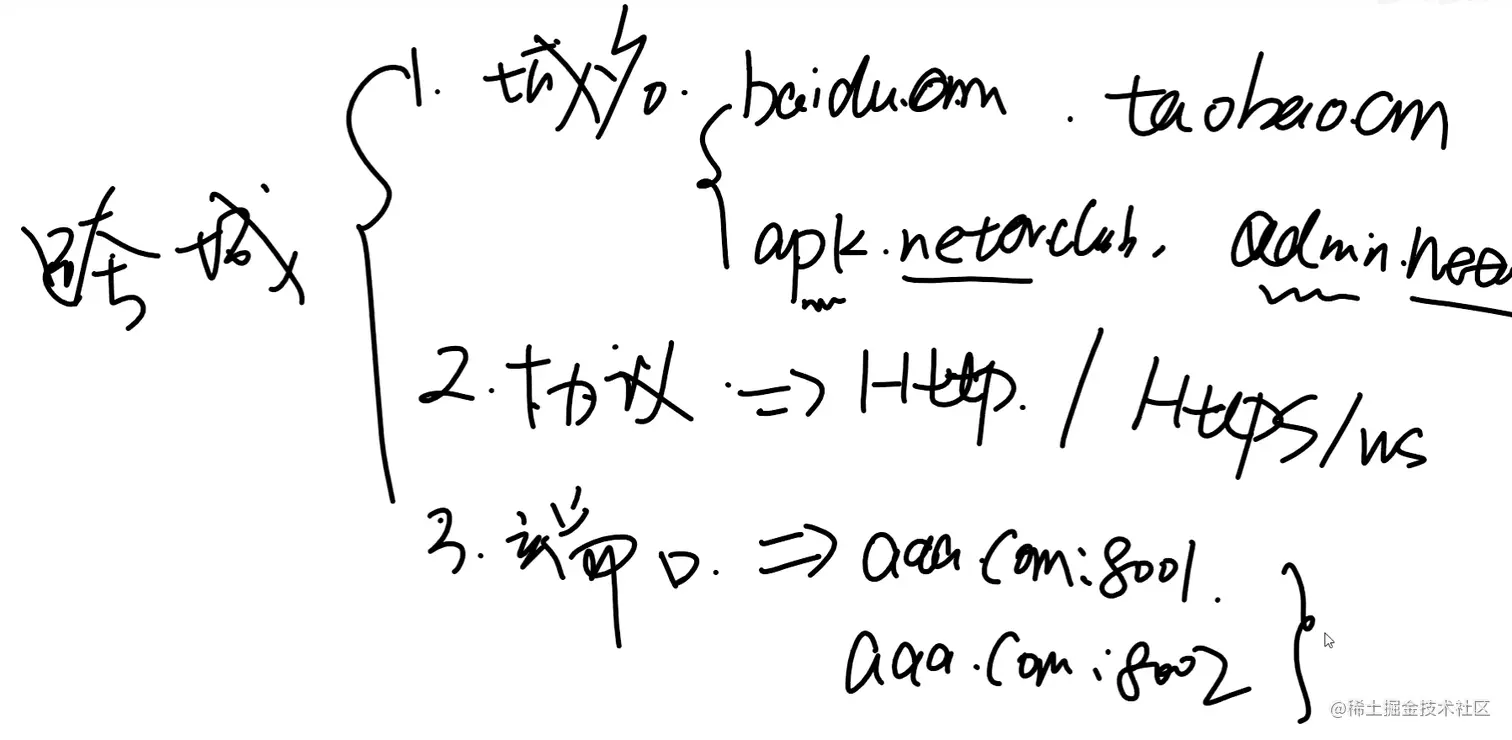 跨域
1. 域名. baidu.com . taobao.com
apk.netorclub, admin.neto
2. 协议 => Http. / Https/ws
3. 端口. => aaa.com:8001.
aaa.com:8002
@稀土掘金技术社区